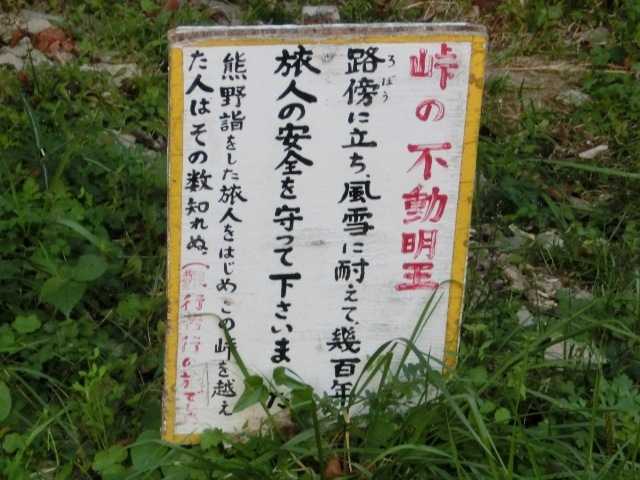 峠の不動明王
路傍に立ち、風雪に耐えて、幾百年
ろぼう
旅人の安全を守って下さいました
熊野詣をした旅人をはじめ、この峠を越え
た人はその数知れぬ。